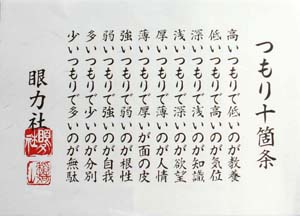 つもり十箇条
高いつもりで低いのが教養
低いつもりで高いのが気位
深いつもりで浅いのが知識
浅いつもりで深いのが欲望
厚いつもりで薄いのが人情
薄いつもりで厚いのが面の皮
強いつもりで弱いのが根性
弱いつもりで強いのが自我
多いつもりで少いのが分別
少いつもりで多いのが無駄
眼力社